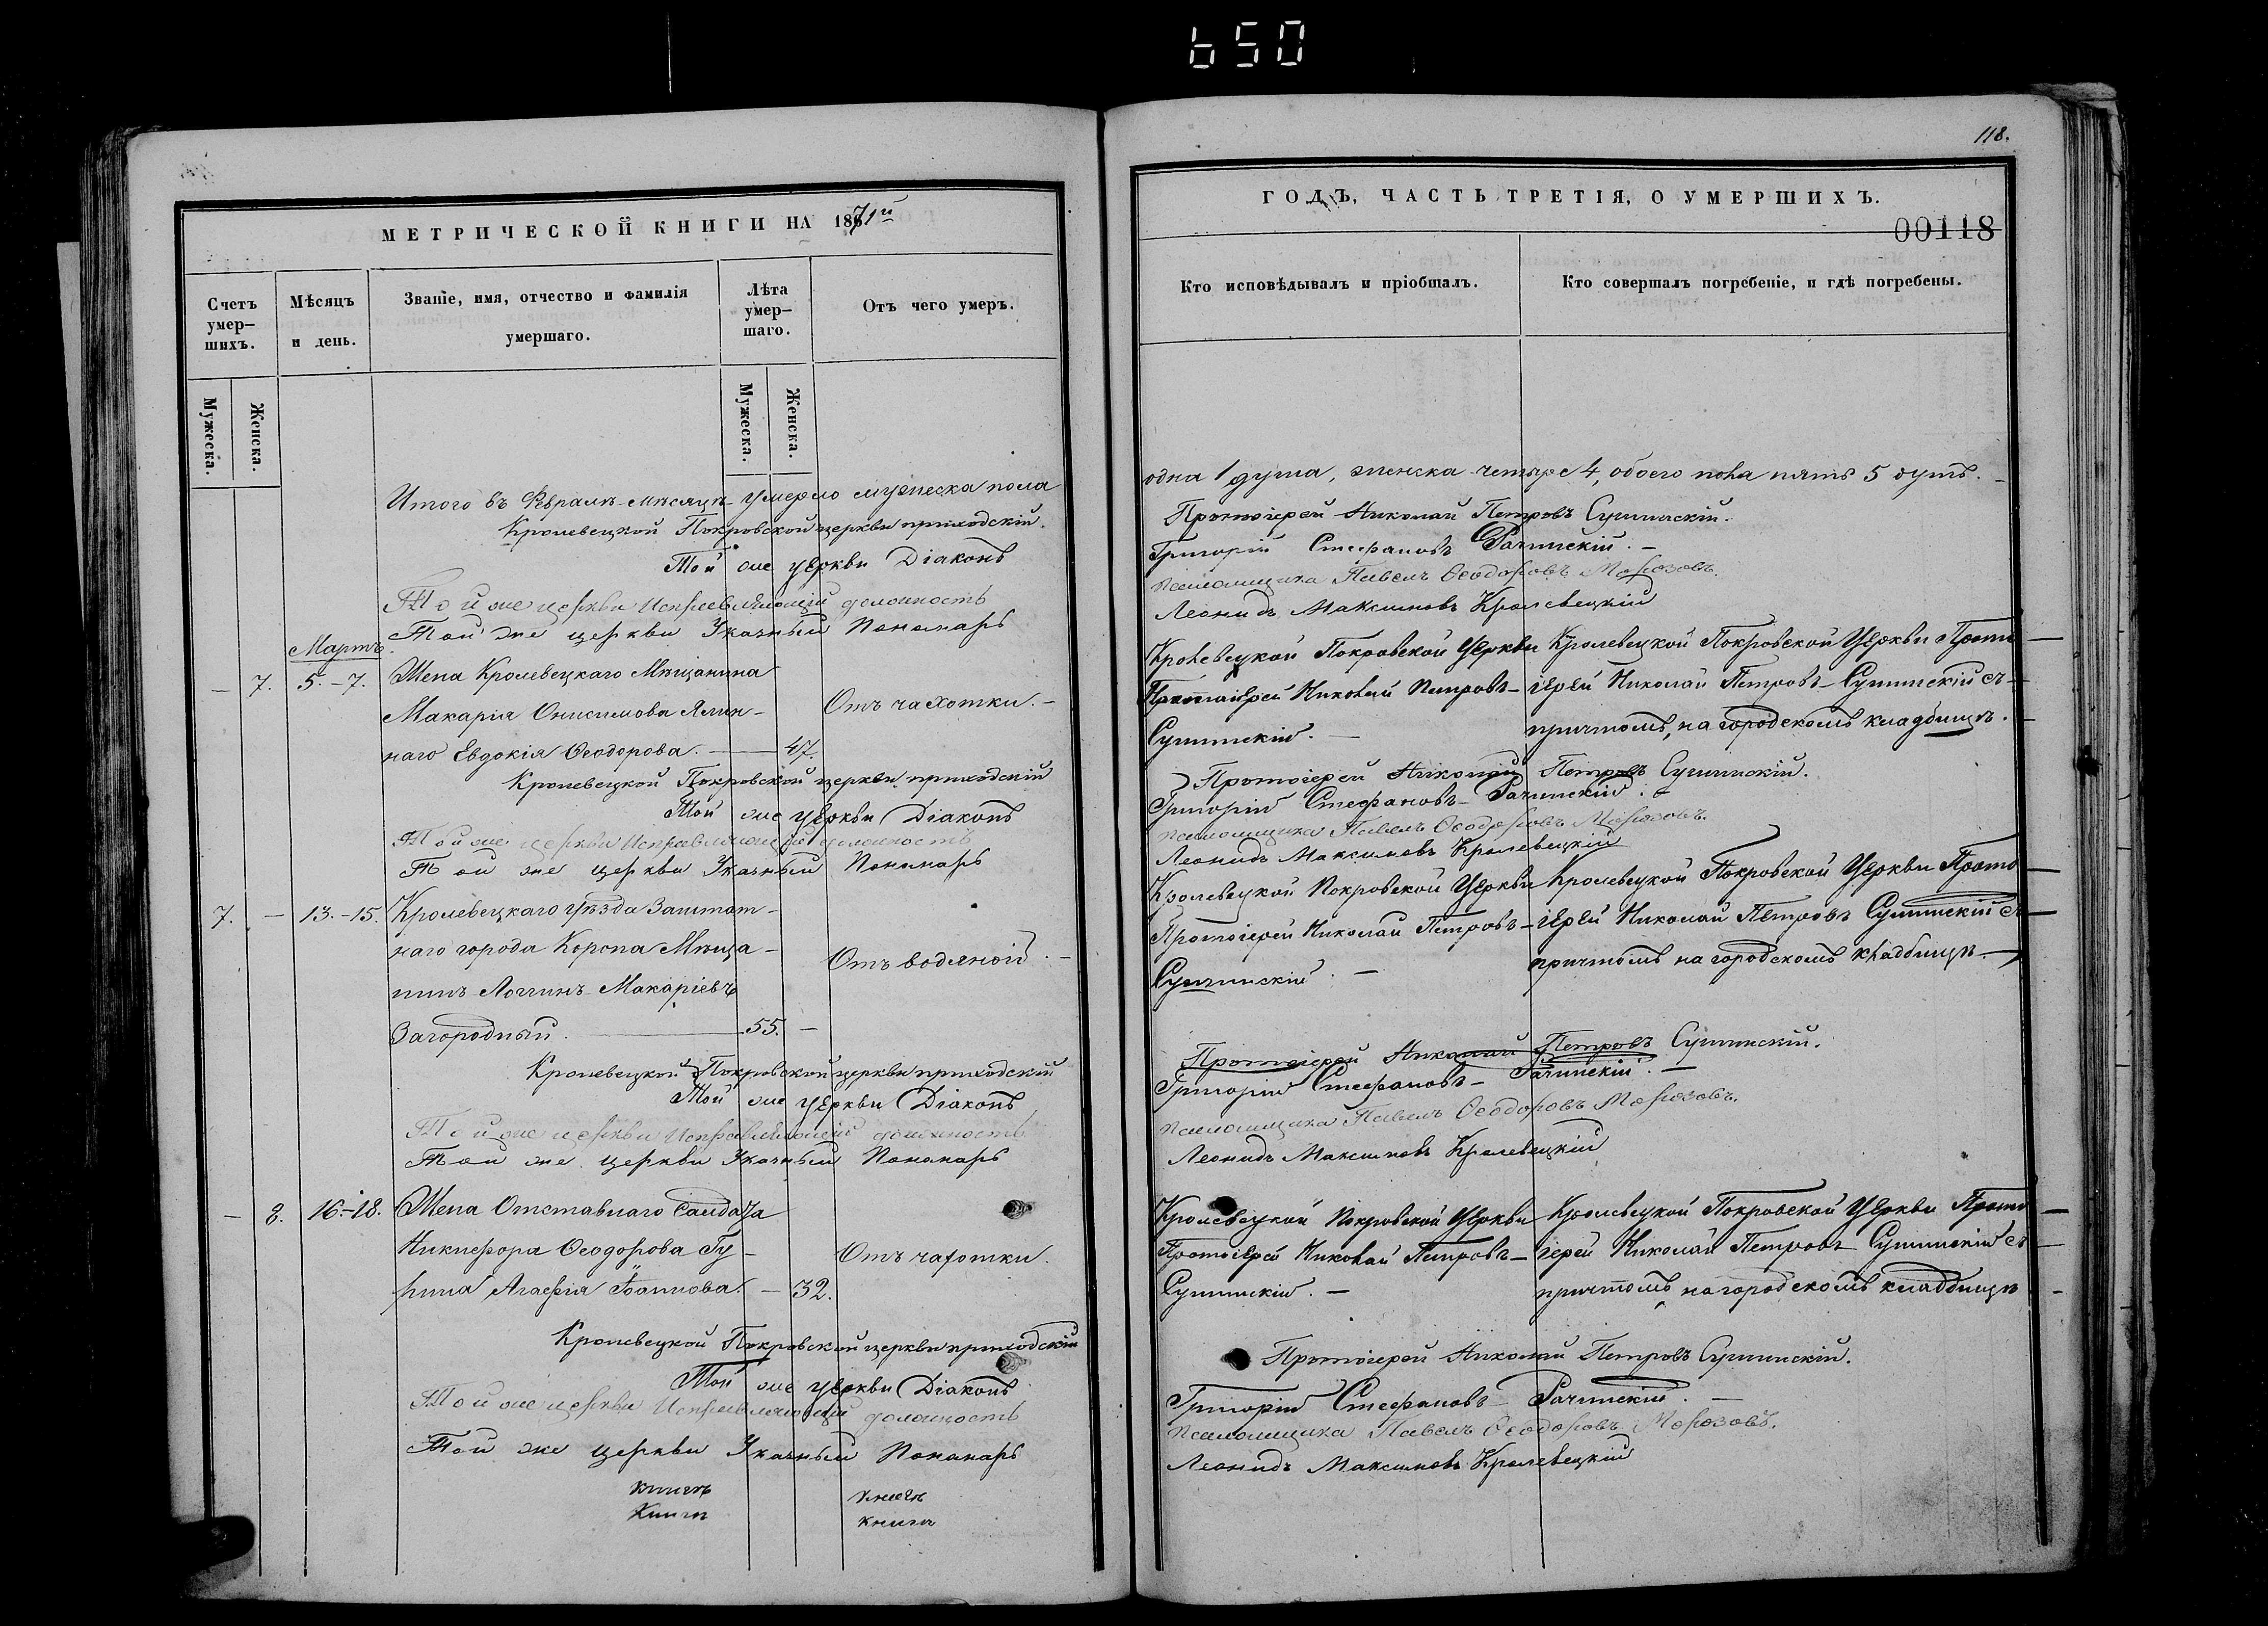 650
118.
МЕТРИЧЕСКОЙ КНИГИ НА 1871й
ГОДЪ, ЧАСТЬ ТРЕТІЯ, О УМЕРШИХЪ.
00118
Счетъ умер–шихъ.
Мѣсяцъ и день.
Званіе, имя, отчество и фамилія умершаго.
Лѣта умер–шаго.
Отъ чего умеръ.
Кто исповѣдывалъ и пріобщалъ.
Кто совершалъ погребеніе, и гдѣ погребены.
Мужеска.
Женска.
Мужеска.
Женска.
Итого въ Февралѣ мѣсяцѣ умерло мужеска пола
одна 1 душа, женска четыре 4, обоего пола пять 5 душъ.
Кролевецкой Покровской церкви приходскій
Протоіерей Николай Петровъ
Той же церкви Діаконъ
Григорій Стефановъ Рачинскій.
Той же церкви Исправляющій должность
псаломщика Павелъ Ѳеодоровъ Морозовъ.
Той же церкви Указный Пономарь
Леонидъ Максимовъ Кролевецкій
Мартъ
— 7. 5.–7. Жена Кролевецкаго Мѣщанина
Макарія Онисимова
наго Евдокія Ѳеодорова. — 47.
Отъ чахотки.
Кролевецкой Покровской Церкви
Протоіерей Николай Петровъ
Кролевецкой Покровской Церкви Прото
іерей Николай Петровъ съ
причтомъ, на городскомъ кладбищѣ.
Кролевецкой Покровской церкви приходскій
Протоіерей Николай Петровъ
Той же церкви Діаконъ
Григорій Стефановъ Рачинскій.
Той же церкви Исправляющій должность
псаломщика Павелъ Ѳеодоровъ Морозовъ.
Той же церкви Указный Пономарь
Леонидъ Максимовъ Кролевецкій
7. — 13.–15. Кролевецкаго Уѣзда Заштат–
наго города Коропа Мѣща–
нинъ Логгинъ Макаріевъ
Загородный. — 55. —
Отъ водяной.
Кролевецкой Покровской Церкви
Протоіерей Николай Петровъ
Кролевецкой Покровской Церкви Прото
іерей Николай Петровъ съ
причтомъ на городскомъ кладбищѣ.
Кролевецкой Покровской церкви приходскій
Протоіерей Николай Петровъ
Той же церкви Діаконъ
Григорій Стефановъ Рачинскій.
Той же церкви Исправляющій должность
псаломщика Павелъ Ѳеодоровъ Морозовъ.
Той же церкви Указный Пономарь
Леонидъ Максимовъ Кролевецкій
— 8. 16.–18. Жена Отставнаго Солдата
Никифора Ѳеодорова Гу–
рина Агафія Іоаннова. — 32.
Отъ чахотки.
Кролевецкой Покровской Церкви
Протоіерей Николай Петровъ
Кролевецкой Покровской Церкви Прото
іерей Николай Петровъ съ
причтомъ на городскомъ кладбищѣ
Кролевецкой Покровской церкви приходскій
Протоіерей Николай Петровъ
Той же церкви Діаконъ
Григорій Стефановъ Рачинскій.
Той же церкви Исправляющій должность
псаломщика Павелъ Ѳеодоровъ Морозовъ.
Той же церкви Указный Пономарь
Леонидъ Максимовъ Кролевецкій